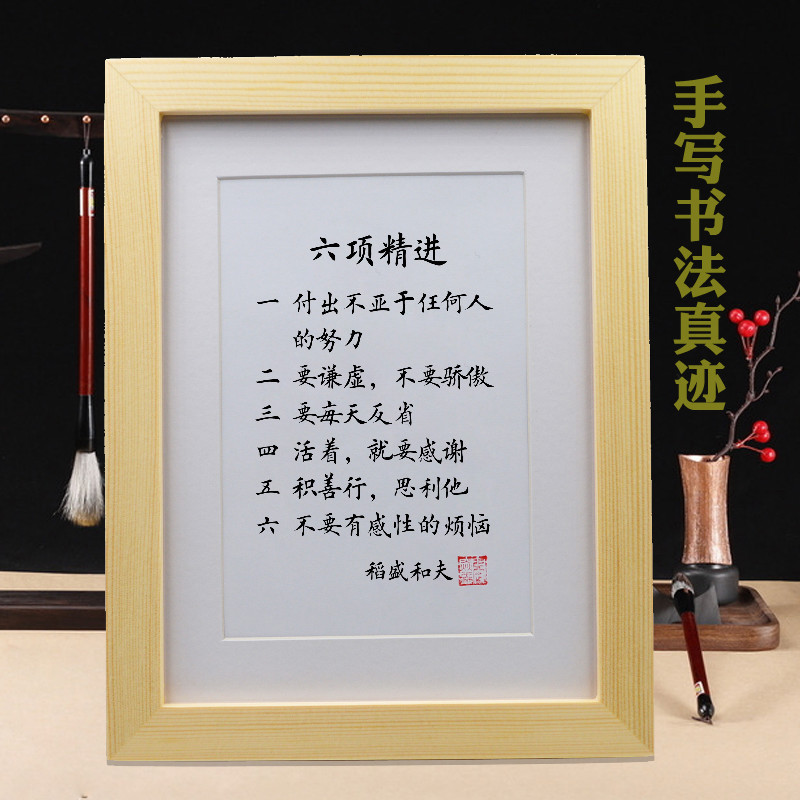 六项精进
一 付出不亚于任何人
的努力
二 要谦虚，不要骄傲
三 要每天反省
四 活着，就要感谢
五 积善行，思利他
六 不要有感性的烦恼
稻盛和夫
手写书法真迹